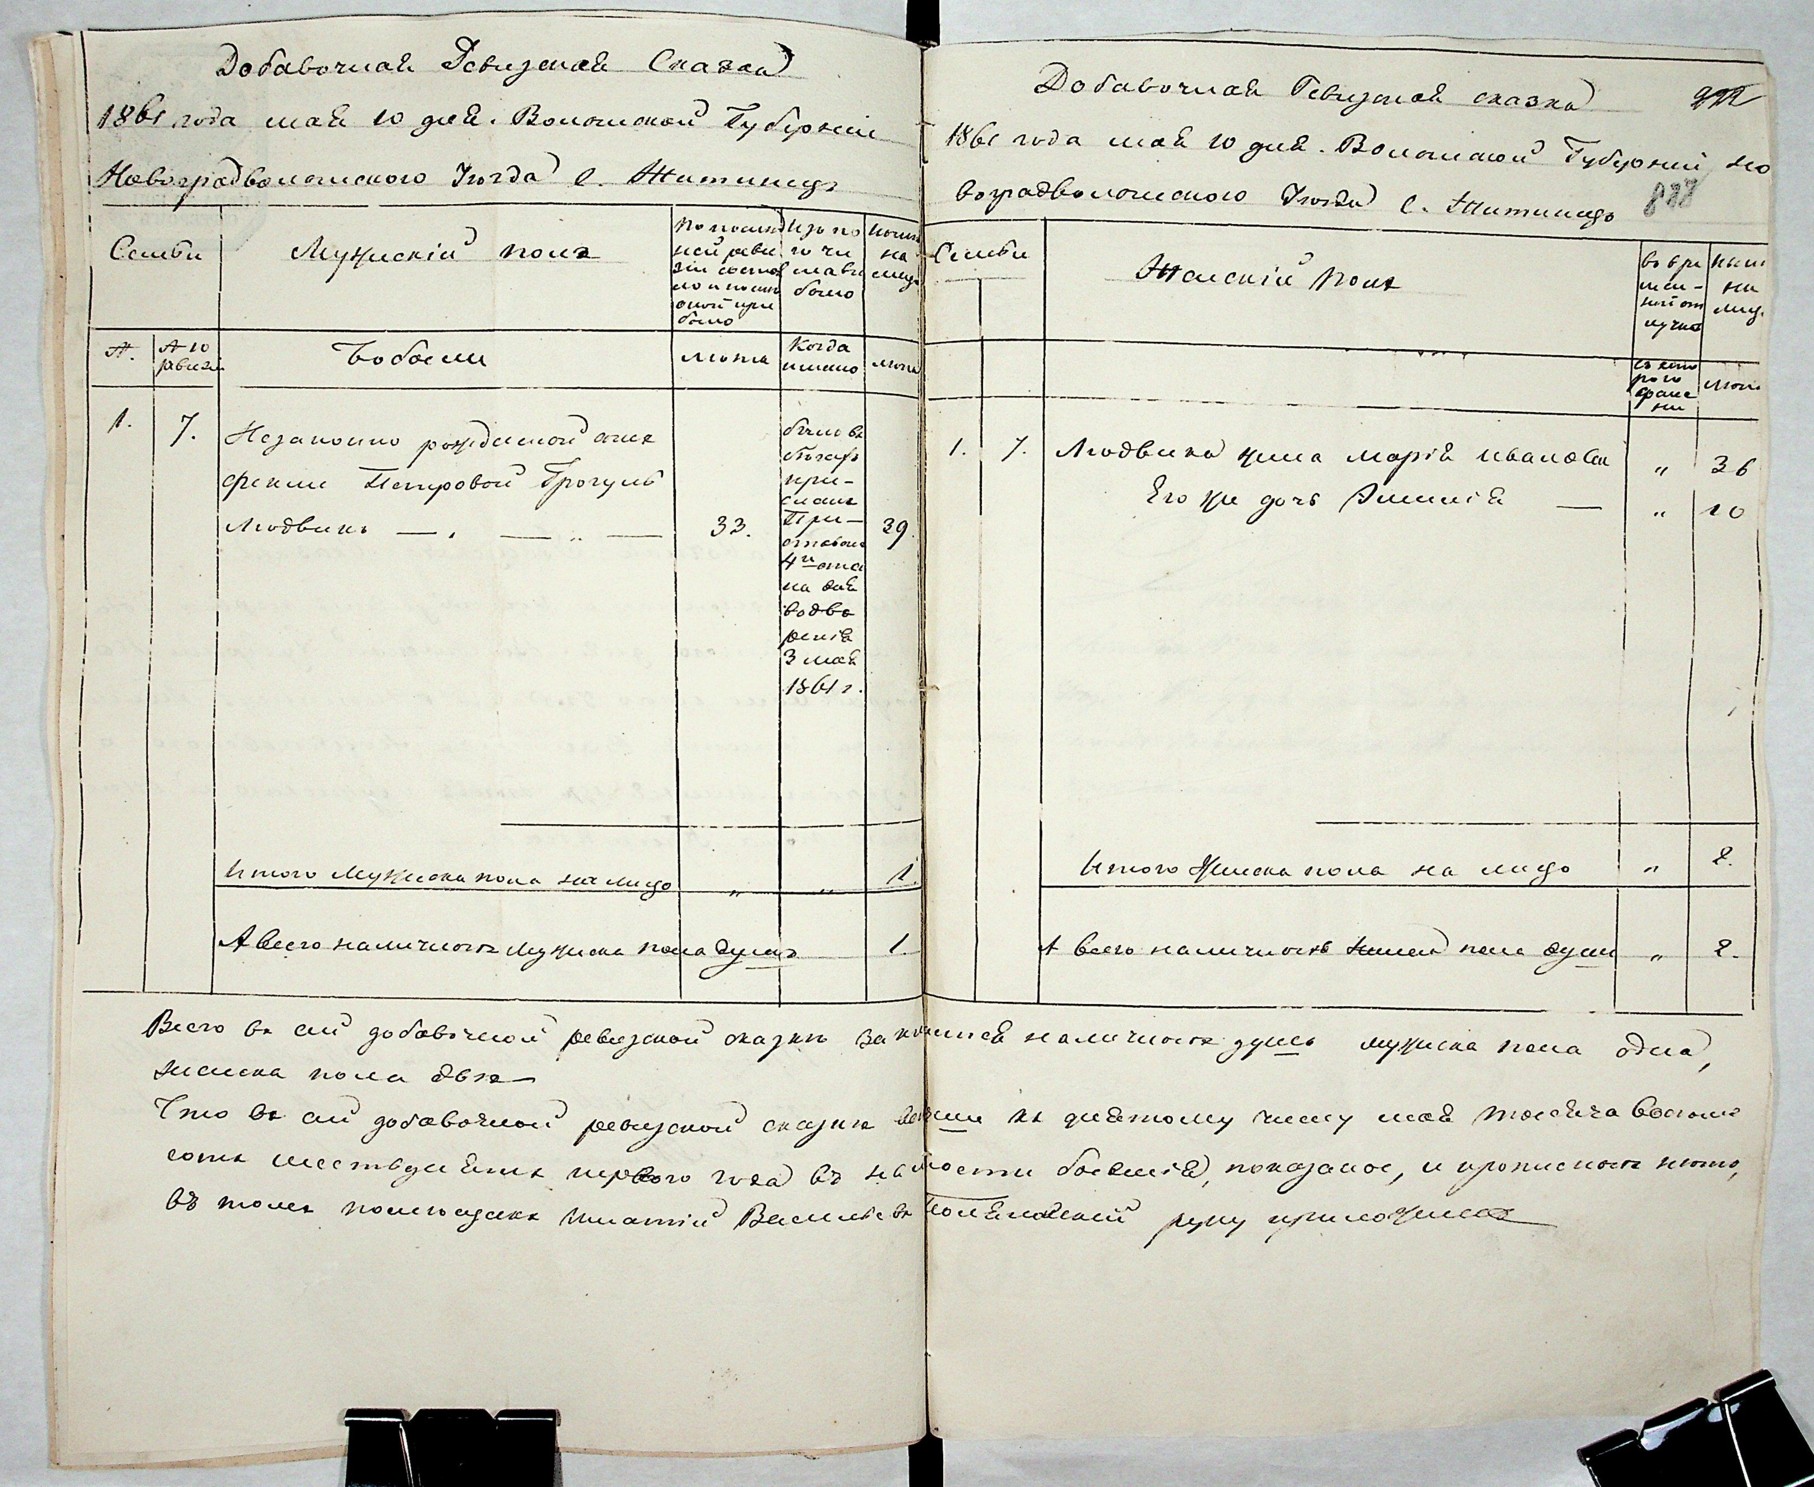 Добавочная Ревизская Сказка
1861 года мая 10 дня. Волынской Губерніи
Новоградволынского Уѣзда с. Житинецъ
Семьи
Мужескій полъ
По послед
ней реви
зіи состоя
ло и после
оной при
было
Изъ по
го чи
сла вы
было
Ныне
на
лицо
№.
№ 10
ревизіи
Бобыли
лѣта
Когда
имено
лѣта
1.
7.
Незаконно рожденной сынъ
Феклы Петровой
Людвикъ — " — " —
33.
былъ въ
бѣгахъ
при-
сланъ
При-
ставомъ
4го стана
на для
водво
ренія
3 мая
1861 г.
39.
Итого Мужеска пола на лицо " " 1.
А всего наличныхъ Мужеска пола душъ 1.
Добавочная Ревизская сказка
1861 года мая 10 дня. Волынской Губерніи Но
воградволынского Уѣзда с. Житинецъ
888
Семьи
Женскій Полъ
во вре
мен-
ной от
лучке
ныне
на
лицо
съ кото
рого
време
ни
лѣта
1. 7. Людвика жена Марія Иванова " 36
Его же дочь — " 10
Итого Женска пола на лицо " 2.
А всего наличныхъ Женска пола душъ " 2.
Всего въ сей добавочной ревизской сказкѣ наличныхъ душъ мужеска пола одна,
женска пола двѣ—
Что въ сей добавочной ревизской сказкѣ все къ десятому числу мая тысяча восемь
сотъ шестьдесятъ первого года въ показаны, и прописныхъ нѣтъ,
въ томъ помѣщикъ Игнатій Васильевъ руку приложилъ